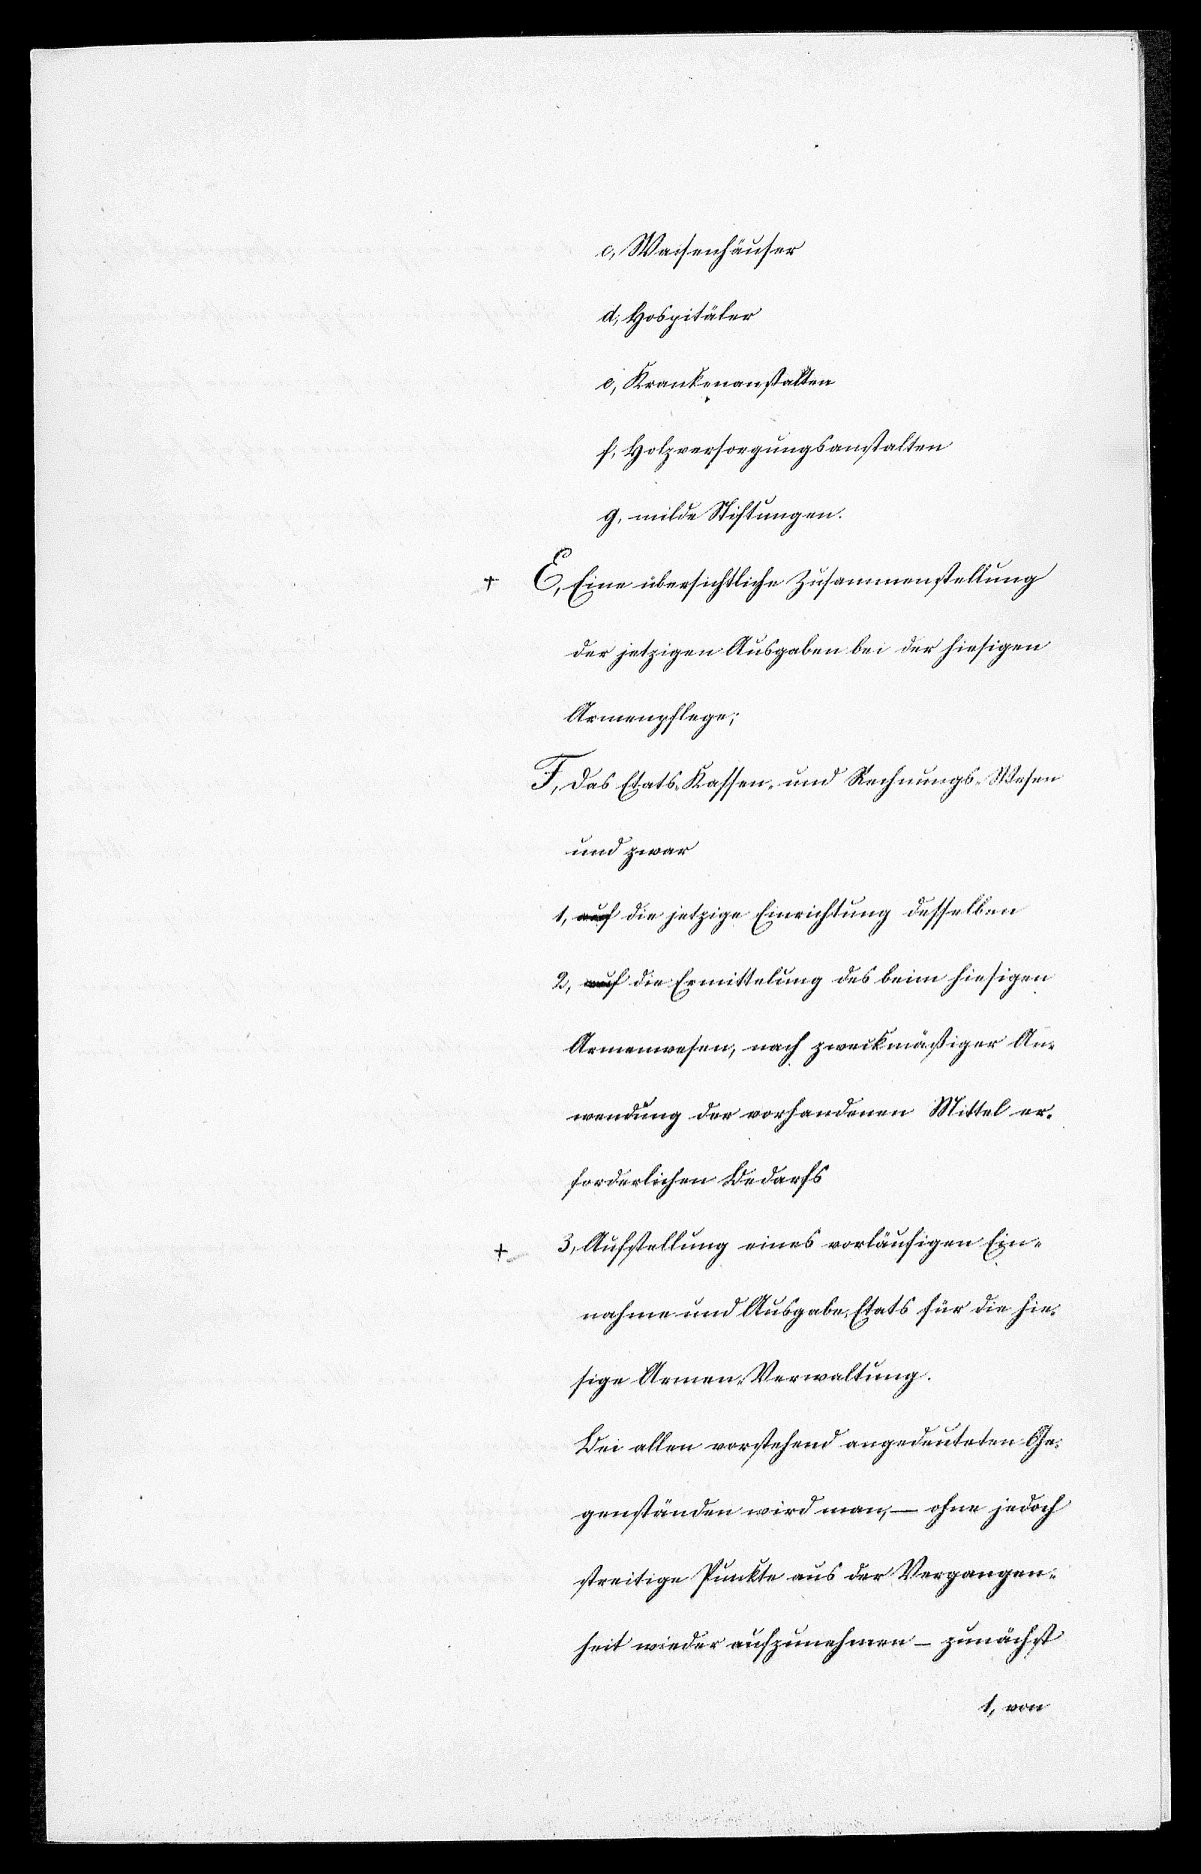 c, Waisenhäuser
d, Hospitäler
e, Krankenanstalten
f, Holzversorgungsanstalten
g, milde Stiftungen.
+ E, Eine übersichtliche Zusammenstellung
der jetzigen Ausgaben bei der hiesigen
Armenpflege;
F, das Etats-Kassen- und Rechnungs-Wesen
und zwar
1, auf die jetzige Einrichtung desselben
2, auf die Ermittelung des beim hiesigen
Armenwesen, nach zweckmäßiger An-
wendung der vorhandenen Mittel er-
forderlichen Bedarfs
+ 3, Aufstellung eines vorläufigen Ein-
nahme und Ausgabe-Etats für die hie-
sige Armen-Verwaltung.
Bei allen vorstehend angedeuteten Ge-
genständen wird man, — ohne jedoch
streitige Punkte aus der Vergangen-
heit wieder aufzunehmen — zunächst
1, von